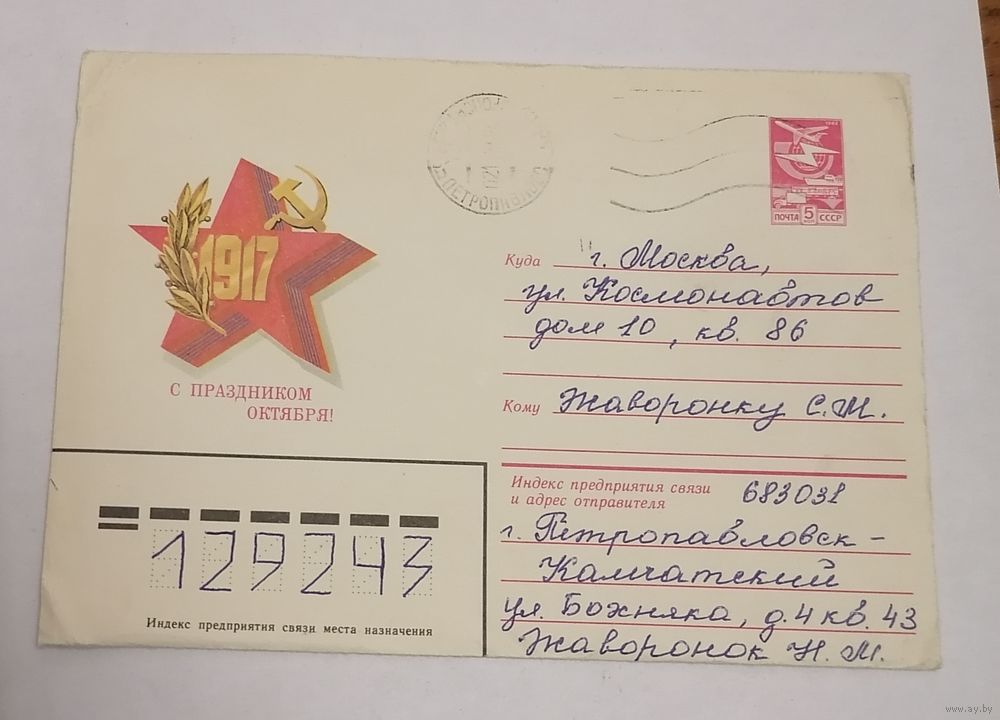 1917
С ПРАЗДНИКОМ
ОКТЯБРЯ!
1982
ПОЧТА 5 КОП СССР
Куда г. Москва,
ул. Космонавтов
дом 10, кв. 86
Кому Жаворонку С.М.
Индекс предприятия связи
и адрес отправителя 683031
г. Петропавловск-
Камчатский
ул. Бохняка, д. 4 кв. 43
Жаворонок Н. М.
129243
Индекс предприятия связи места назначения
www.ay.by